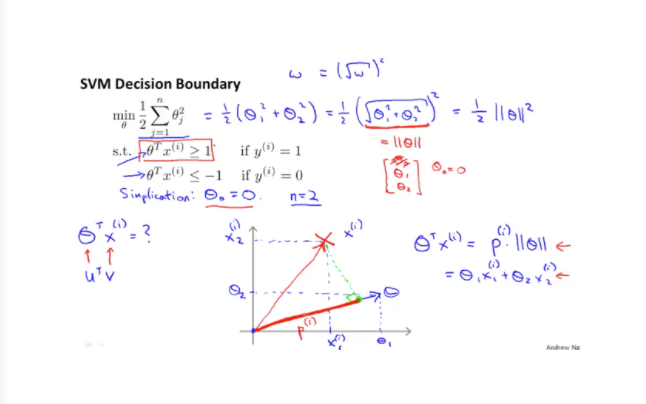 ω = (√ω)²
SVM Decision Boundary
min_θ 1/2 Σ_{j=1}^{n} θ_j² = 1/2 (θ₁² + θ₂²) = 1/2 (√(θ₁² + θ₂²))² = 1/2 ||θ||²
= ||θ||
s.t. θᵀx⁽ⁱ⁾ ≥ 1 if y⁽ⁱ⁾ = 1
→ θᵀx⁽ⁱ⁾ ≤ −1 if y⁽ⁱ⁾ = 0
[θ₁ θ₂] θ₀=0
Simplication: θ₀ = 0. n=2
θᵀx⁽ⁱ⁾ = ?
↑ ↑
uᵀv
x₂⁽ⁱ⁾
x⁽ⁱ⁾
θ₂
θ
p⁽ⁱ⁾
x₁⁽ⁱ⁾
θ₁
θᵀx⁽ⁱ⁾ = p⁽ⁱ⁾·||θ|| ←
= θ₁x₁⁽ⁱ⁾ + θ₂x₂⁽ⁱ⁾ ←
Andrew Ng